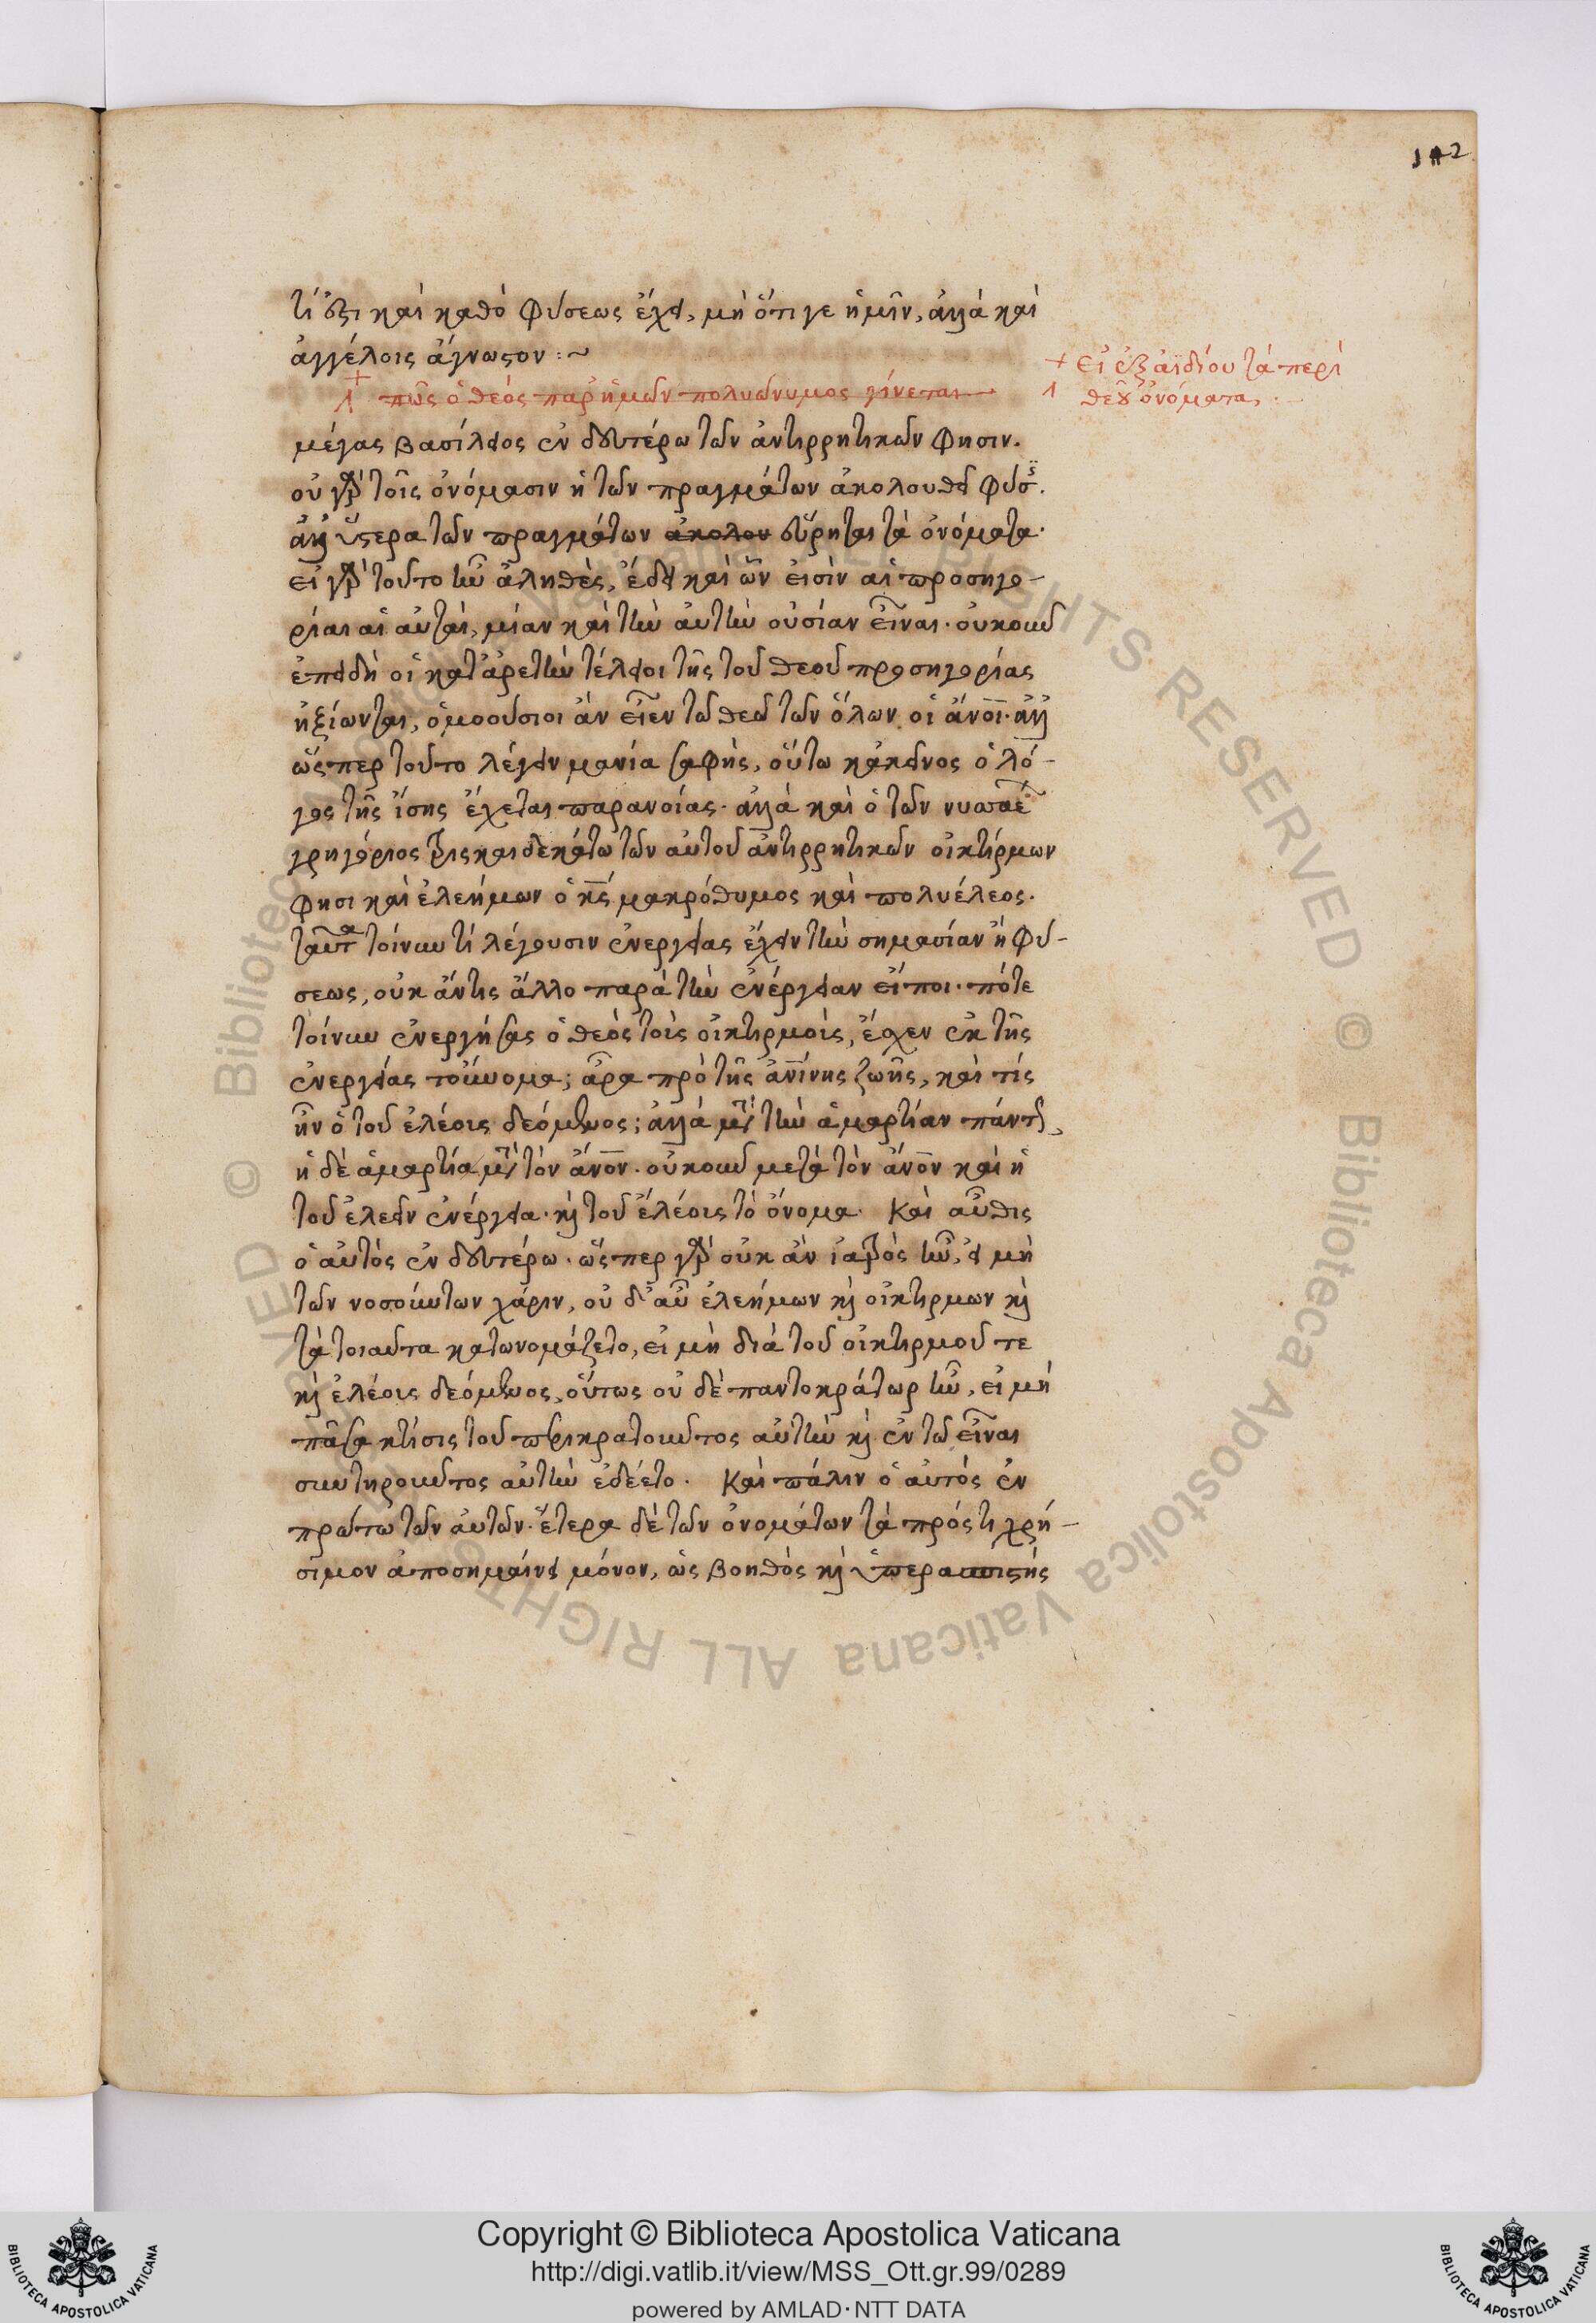 142
τί ἐστι καὶ καθὸ φύσεως ἔχει, μὴ ὅτι γε ἡμῖν, ἀλλὰ καὶ
ἀγγέλοις ἄγνωστον :~
+ πῶς ὁ θεὸς παρ' ἡμῶν πολυώνυμος γίνεται
+ εἰ ἐξ ἀϊδίου τὰ περὶ
θεοῦ ὀνόματα.
μέγας βασίλειος ἐν δευτέρω τῶν ἀντιρρητικῶν φησιν.
οὐ γὰρ τοῖς ὀνόμασιν ἡ τῶν πραγμάτων ἀκολουθεῖ φύσις.
ἀλλ' ὕστερα τῶν πραγμάτων ἀκολου εὕρηται τὰ ὀνόματα·
εἰ γὰρ τοῦτο ἦν ἀληθὲς, ἔδει καὶ ὧν εἰσὶν αἱ προσηγο-
ρίαι αἱ αὐταὶ, μίαν καὶ τὴν αὐτὴν οὐσίαν εἶναι. οὐκοῦν
ἐπειδὴ οἱ κατ' ἀρετὴν τέλειοι τῆς τοῦ θεοῦ προσηγορίας
ἠξίωνται, ὁμοούσιοι ἂν εἶεν τῶ θεῶ τῶν ὅλων οἱ ἄνοι. ἀλλ'
ὥσπερ τοῦτο λέγειν μανία σαφὴς, οὕτω κἀκεῖνος ὁ λό-
γος τῆς ἴσης ἔχεται παρανοίας. ἀλλὰ καὶ ὁ τῶν νυσσαέ
γρηγόριος τρισκαιδεκάτω τῶν αὐτοῦ ἀντιρρητικῶν οἰκτίρμων
φησι καὶ ἐλεήμων ὁ κς μακρόθυμος καὶ πολυέλεος.
ταῦτα τοίνυν τί λέγουσιν ἐνεργείας ἔχειν τὴν σημασίαν ἢ φύ-
σεως, οὐκ ἄν τις ἄλλο παρὰ τὴν ἐνέργειαν εἴποι. πότε
τοίνυν ἐνεργήσας ὁ θεὸς τοὶς οἰκτιρμοὶς, ἔσχεν ἐκ τῆς
ἐνεργείας τοὔνομα; ἆρα πρὸ τῆς ἀνίνης ζωῆς, καὶ τίς
ἦν ὁ τοῦ ἐλέους δεόμενος; ἀλλὰ μετὰ τὴν ἁμαρτίαν πάντως,
ἡ δὲ ἁμαρτία μετὰ τὸν ἄνον. οὐκοῦν μετὰ τὸν ἄνον καὶ ἡ
τοῦ ἐλεεῖν ἐνέργεια. καὶ τοῦ ἐλέους τὸ ὄνομα. Καὶ αὖθις
ὁ αὐτὸς ἐν δευτέρω. ὥσπερ γὰρ οὐκ ἂν ἰατρὸς ἦν, εἰ μὴ
τῶν νοσούντων χάριν, οὐδ' αὖ ἐλεήμων καὶ οἰκτιρμων καὶ
τὰ τοιαῦτα κατωνομάζετο, εἰ μὴ διὰ τοῦ οἰκτιρμοῦ τε
καὶ ἐλέους δεόμενος, οὕτως οὐδὲ παντοκράτωρ ἦν, εἰ μὴ
πᾶσα κτίσις τοῦ περικρατοῦντος αὐτὴν καὶ ἐν τῶ εἶναι
συντηροῦντος αὐτὴν ἐδέετο. Καὶ πάλιν ὁ αὐτὸς ἐν
πρώτω τῶν αὐτῶν. ἕτερα δὲ τῶν ὀνομάτων τὰ πρός τι χρή-
σιμον ἀποσημαίνει μόνον, ὡς βοηθὸς καὶ ὑπερασπιστής
© Biblioteca Apostolica Vaticana ALL RIGHTS RESERVED
Copyright © Biblioteca Apostolica Vaticana
http://digi.vatlib.it/view/MSS_Ott.gr.99/0289
powered by AMLAD·NTT DATA
BIBLIOTECA APOSTOLICA VATICANA
BIBLIOTECA APOSTOLICA VATICANA